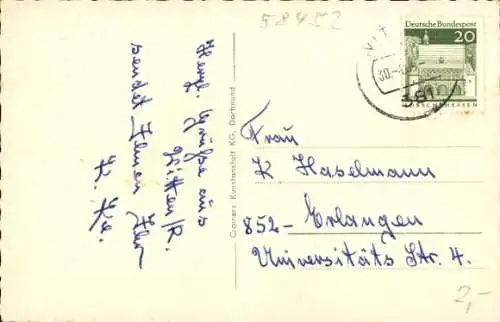 58452
Deutsche Bundespost
20
LORSCH/HESSEN
WITT
30.
581
Herzl. Grüße aus
Witten/R.
sendet Ihnen Ihr
K. Ke.
Cramers Kunstanstalt KG, Dortmund
Frau
K Haselmann
852- Erlangen
Universitäts Str. 4.
2,-